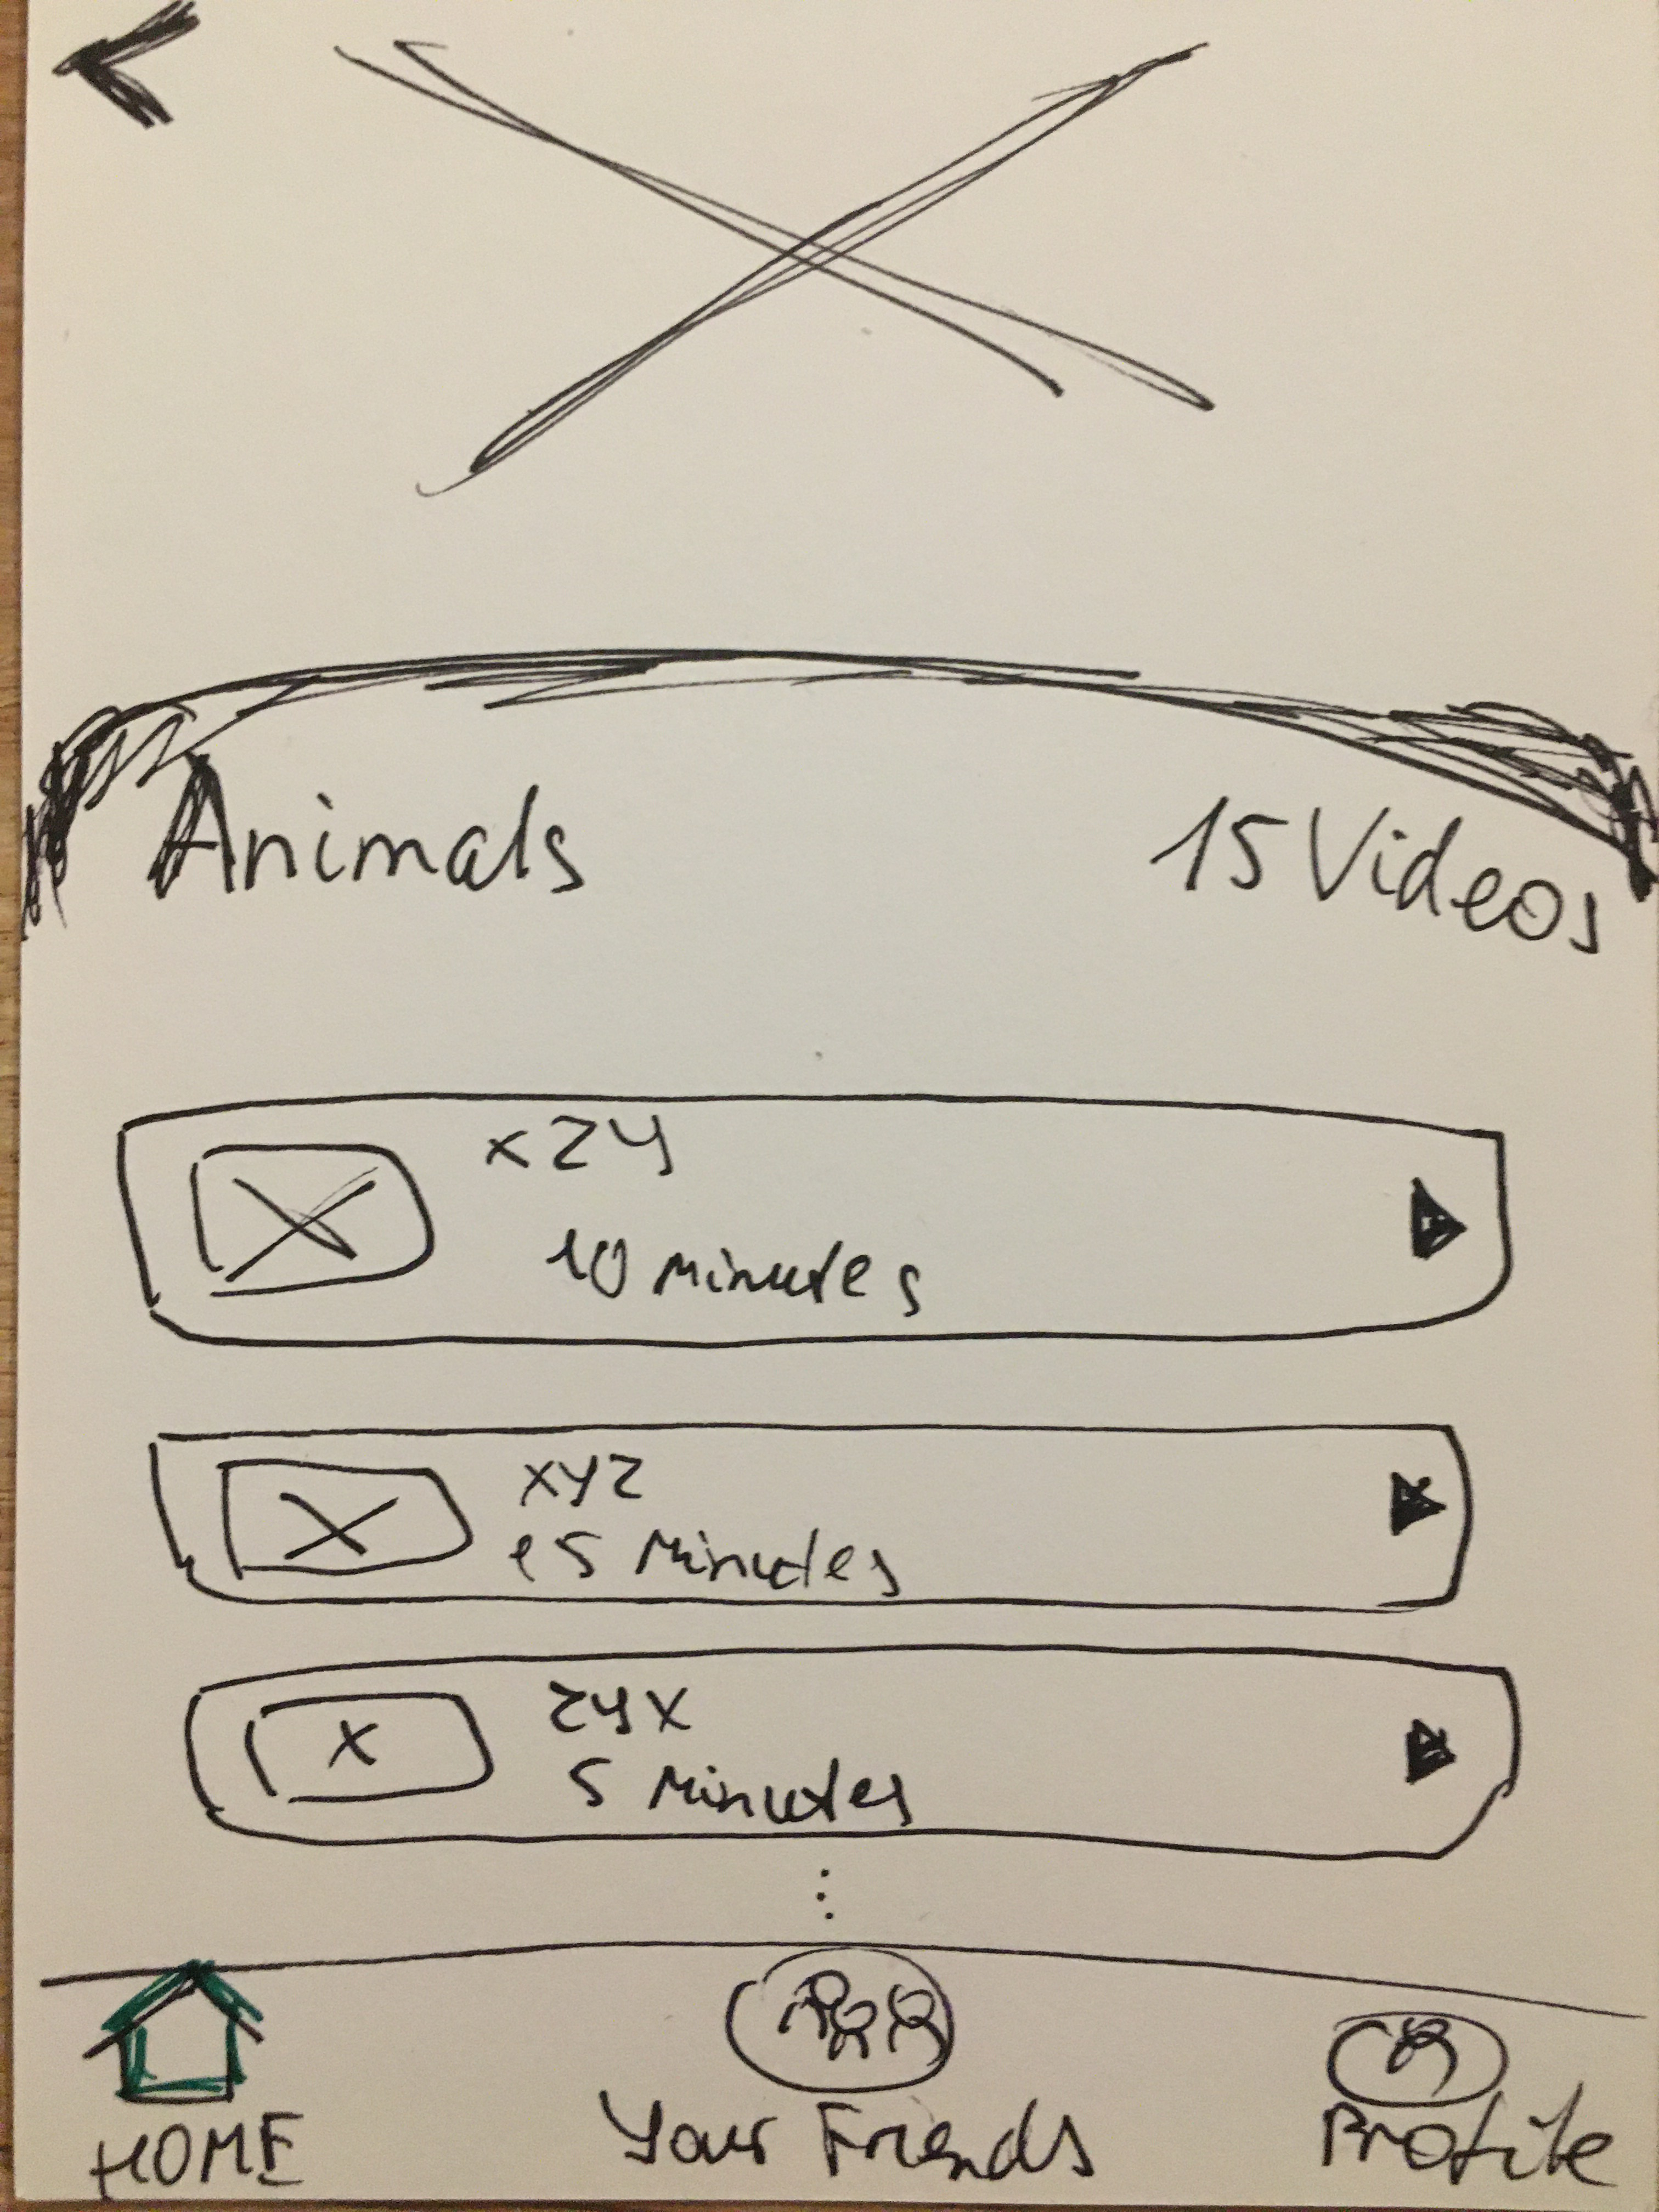 Animals 15 Videos
xzy
10 minutes
xyz
15 Minutes
zyx
5 Minutes
HOME Your Friends Profile